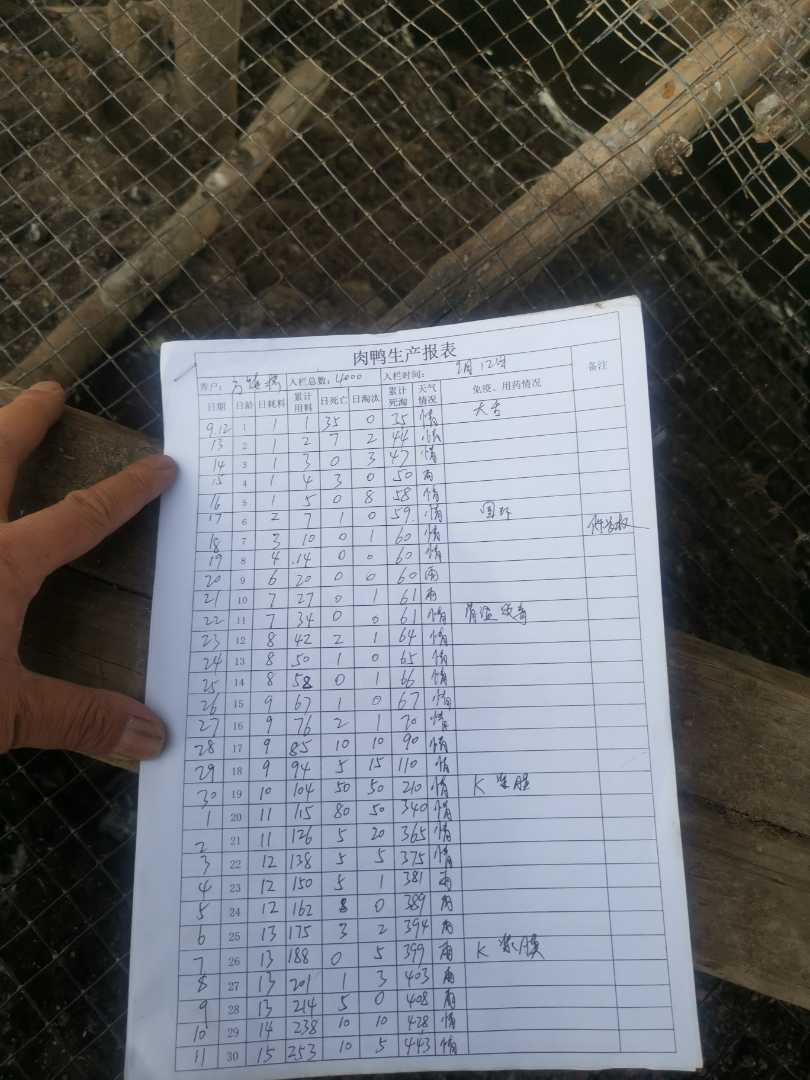 肉鸭生产报表
客户： 入栏总数：4000 入栏时间： 9月12号
日期 日龄 日耗料 累计用料 日死亡 日淘汰 累计死淘 天气情况 免疫、用药情况 备注
9.12 1 1 1 35 0 35 情
13 2 1 2 7 2 44 情
14 3 1 3 0 3 47 情
15 4 1 4 3 0 50 雨
16 5 1 5 0 8 58 情
17 6 2 7 1 0 59 情
18 7 3 10 0 1 60 情
19 8 4 14 0 0 60 情
20 9 6 20 0 0 60 雨
21 10 7 27 0 1 61 雨
22 11 7 34 0 0 61 情
23 12 8 42 2 1 64 情
24 13 8 50 1 0 65 情
25 14 8 58 0 1 66 情
26 15 9 67 1 0 67 情
27 16 9 76 2 1 70 情
28 17 9 85 10 10 90 情
29 18 9 94 5 15 110 情
30 19 10 104 50 50 210 情 K
1 20 11 115 80 50 340 情
2 21 11 126 5 20 365 情
3 22 12 138 5 5 375 情
4 23 12 150 5 1 381 雨
5 24 12 162 8 0 389 雨
6 25 13 175 3 2 394 雨
7 26 13 188 0 5 399 雨 K
8 27 13 201 1 3 403 雨
9 28 13 214 5 0 408 雨
10 29 14 238 10 10 428 情
11 30 15 253 10 5 443 情